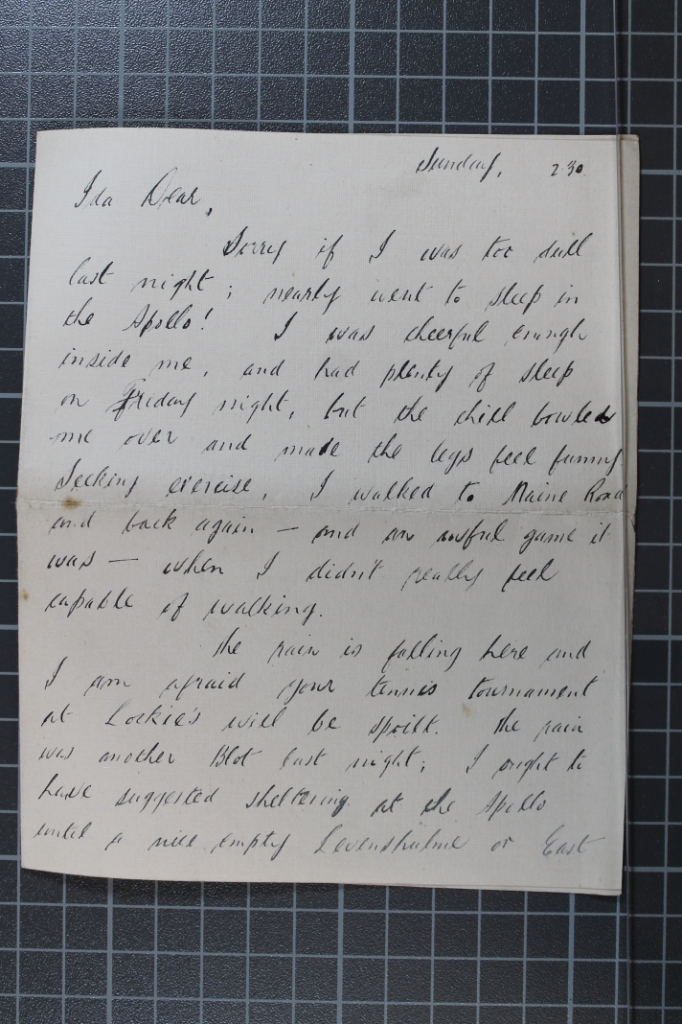 Sunday, 2.30
Ida Dear,
Sorry if I was too dull
last night; nearly went to sleep in
the Apollo! I was cheerful enough
inside me, and had plenty of sleep
on Friday night, but the chill bowled
me over and made the legs feel funny.
Seeking exercise, I walked to Maine Road
and back again — and an awful game it
was — when I didn't really feel
capable of walking.
The rain is falling here and
I am afraid your tennis tournament
at Lockie's will be spoilt. The rain
was another Blot last night; I ought to
have suggested sheltering at the Apollo
until a nice empty Levenshulme or East